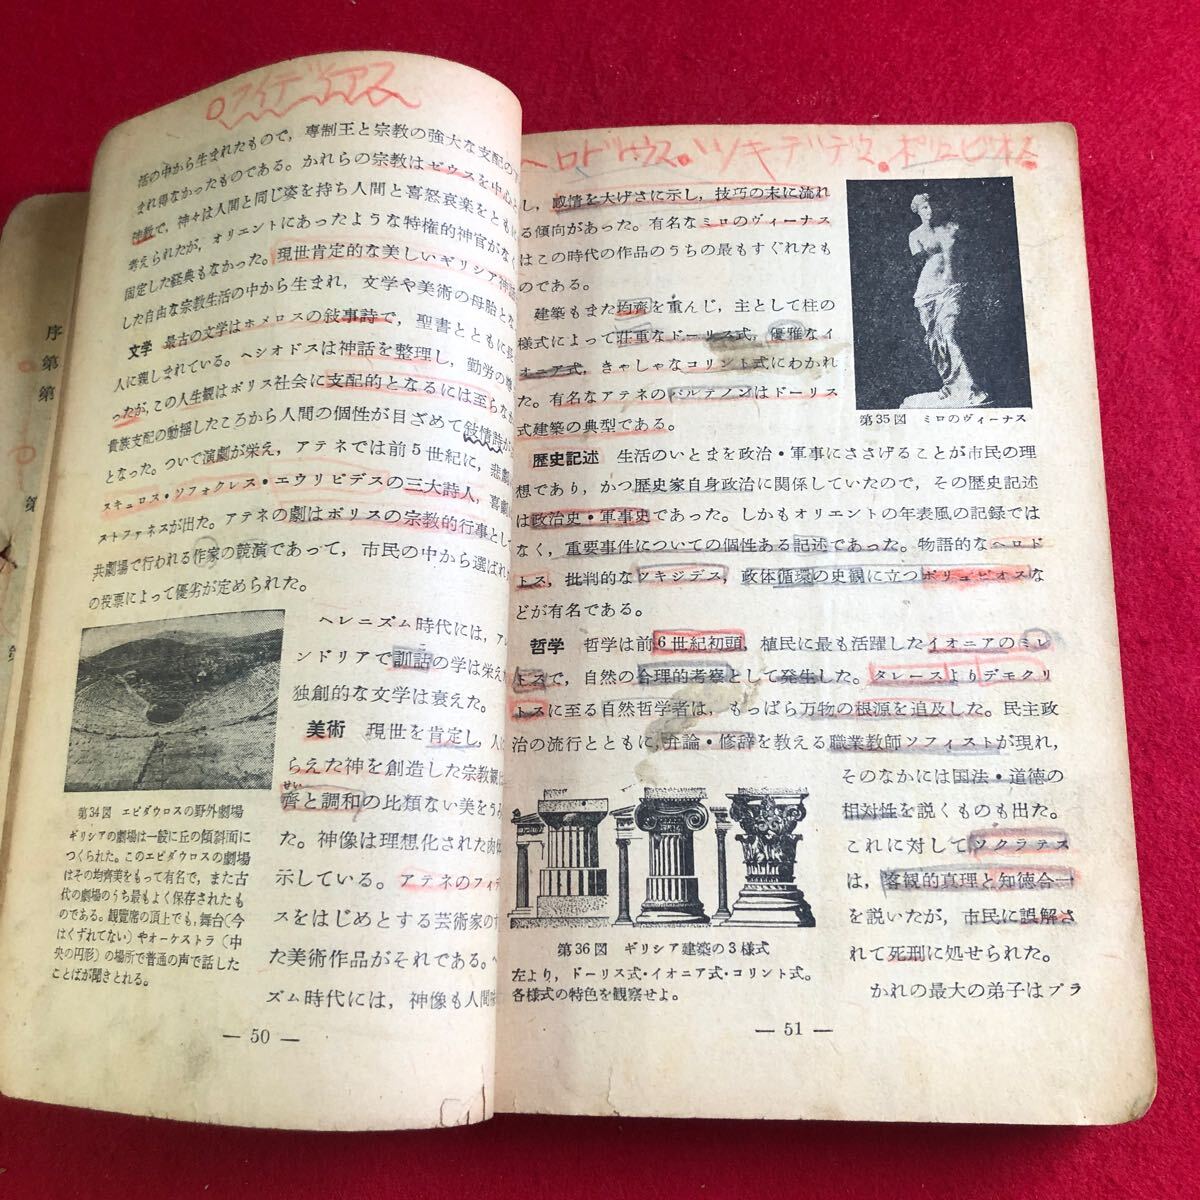 フイデイアス
活の中から生まれたもので，専制王と宗教の強大な支配の
まれ得なかったものである。かれらの宗教はゼウスを中心と
神教で，神々は人間と同じ姿を持ち人間と喜怒哀楽をともに
考えられたが，オリエントにあったような特権的神官がなく
固定した経典もなかった。現世肯定的な美しいギリシア神話
した自由な宗教生活の中から生まれ，文学や美術の母胎とな
文学 最古の文学はホメロスの叙事詩で，聖書とともに長
人に親しまれている。ヘシオドスは神話を整理し，勤労の
ったが，この人生観はポリス社会に支配的となるには至らな
貴族支配の動揺したころから人間の個性が目ざめて叙情詩が
となった。ついで演劇が栄え，アテネでは前5世紀に，悲劇
スキュロス・ソフォクレス・エウリピデスの三大詩人，喜劇
ストファネスが出た。アテネの劇はポリスの宗教的行事として
共劇場で行われる作家の競演であって，市民の中から選ばれ
の投票によって優劣が定められた。
ヘレニズム時代には，アレ
ンドリアで訓詁の学は栄え
独創的な文学は衰えた。
美術 現世を肯定し，人
らえた神を創造した宗教観
せい
斉と調和の比類ない美をう
た。神像は理想化された肉体
示している。アテネのフィデ
スをはじめとする芸術家のす
た美術作品がそれである。ヘ
ズム時代には，神像も人間
第34図 エピダウロスの野外劇場
ギリシアの劇場は一般に丘の傾斜面に
つくられた。このエピダウロスの劇場
はその均斉美をもって有名で，また古
代の劇場のうち最もよく保存されたも
のである。観覧席の頂上でも，舞台（今
はくずれてない）やオーケストラ（中
央の円形）の場所で普通の声で話した
ことばが聞きとれる。
— 50 —
序
第
第
第
ヘロドトウス・ツキデイデス・ポリュビオス
し，感情を大げさに示し，技巧の末に流れ
る傾向があった。有名なミロのヴィーナス
はこの時代の作品のうちの最もすぐれたも
のである。
建築もまた均斉を重んじ，主として柱の
様式によって荘重なドーリス式，優雅なイ
オニア式，きゃしゃなコリント式にわかれ
た。有名なアテネのパルテノンはドーリス
式建築の典型である。
第35図 ミロのヴィーナス
歴史記述 生活のいとまを政治・軍事にささげることが市民の理
想であり，かつ歴史家自身政治に関係していたので，その歴史記述
は政治史・軍事史であった。しかもオリエントの年表風の記録では
なく，重要事件についての個性ある記述であった。物語的なヘロド
トス，批判的なツキジデス，政体循環の史観に立つポリュビオスな
どが有名である。
哲学 哲学は前6世紀初頭，植民に最も活躍したイオニアのミレ
トスで，自然の合理的考察として発生した。タレースよりデモクリ
トスに至る自然哲学者は，もっぱら万物の根源を追及した。民主政
治の流行とともに，弁論・修辞を教える職業教師ソフィストが現れ，
そのなかには国法・道徳の
相対性を説くものも出た。
これに対してソクラテス
は，客観的真理と知徳合一
を説いたが，市民に誤解さ
れて死刑に処せられた。
かれの最大の弟子はプラ
第36図 ギリシア建築の3様式
左より，ドーリス式・イオニア式・コリント式。
各様式の特色を観察せよ。
— 51 —